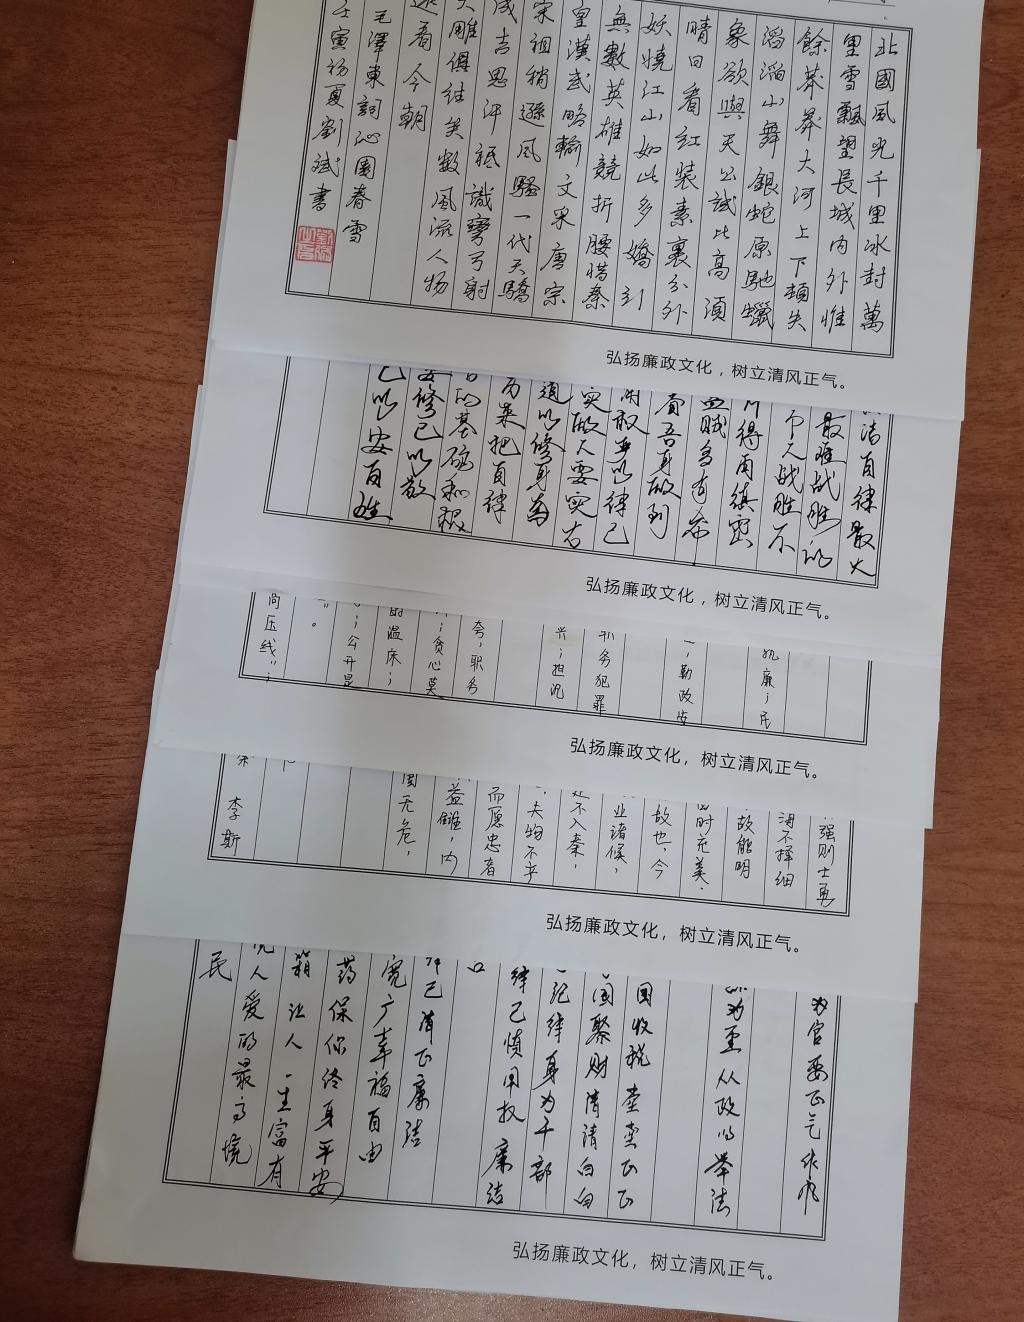 北國風光千里冰封萬
里雪飄望長城内外惟
餘莽莽大河上下頓失
滔滔山舞銀蛇原馳蠟
象欲與天公試比高須
晴日看紅裝素裹分外
妖嬈江山如此多嬌引
無數英雄競折腰惜秦
皇漢武略輸文采唐宗
宋祖稍遜風騷一代天驕
成吉思汗祗識彎弓射
大雕俱往矣數風流人物
還看今朝
毛澤東詞沁園春雪
壬寅初夏劉斌書
弘扬廉政文化，树立清风正气。
洁自律最大
最难战胜的
个人战胜不
所得用缜密
盗贼多有希
责吾身做到
用权要以律己
实做人要实古
道以修身为
历来把自律
的基础和根
安修己以敬
己以安百姓
弘扬廉政文化，树立清风正气。
执廉；民
勤政为
职务犯罪
兴；担沉
夸，职务
；贪心莫
的温床；
；公开是
”。
高压线”；
弘扬廉政文化，树立清风正气。
强则士勇
海不择细
故能明
四时充美，
故也。今
业诸侯，
足不入秦，
夫物不产
而愿忠者
益雠，内
国无危，
李斯
弘扬廉政文化，树立清风正气。
为官要正气作风
为重从政以举法
国收税堂堂正正
国聚财清清白白
记律身为干部
律己慎用权廉洁
口
律己清正廉洁
宽广幸福自由
药保你终身平安
箱让人一生富有
人爱的最高境
民
弘扬廉政文化，树立清风正气。